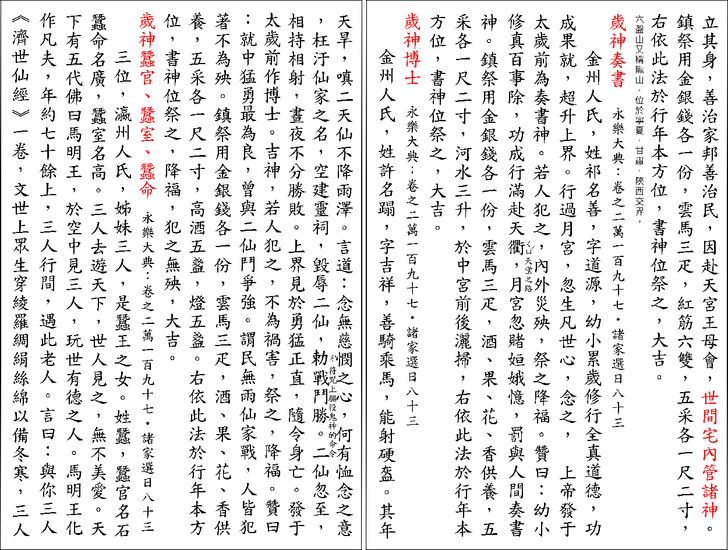 立其身，善治家邦善治民，因赴天宮王母會，世間宅內管諸神。
鎮祭用金銀錢各一份，雲馬三疋，紅筋六雙，五采各一尺二寸，
右依此法於行年本方位，書神位祭之，大吉。
六盤山又稱隴山，位於寧夏、甘肅、陝西交界。
歲神奏書　永樂大典：卷之二萬一百九十七‧諸家選日八十三
金州人氏，姓祁名善，字道源，幼小累歲修行全真道德，功
成果就，超升上界。行過月宮，忽生凡世心，念之，　上帝發于
太歲前為奏書神。若人犯之，內外災殃，祭之降福。贊曰：幼小
修真百事除，功成行滿赴天衢，月宮忽賭姮娥憶，罰與人間奏書
神。鎮祭用金銀錢各一份，雲馬三疋，酒、果、花、香供養，五
采各一尺二寸，河水三升，於中宮前後灑掃，右依此法於行年本
方位，書神位祭之，大吉。
歲神博士　永樂大典：卷之二萬一百九十七‧諸家選日八十三
金州人氏，姓許名蹋，字吉祥，善騎乘馬，能射硬盔。其年
天旱，嗔二天仙不降雨澤。言道：念無慈憫之心，何有恤念之意
，枉汙仙家之名，空建靈祠，毀辱二仙，勅戰鬥勝。二仙忽至，
相持相射，晝夜不分勝敗。上界見於勇猛正直，隨令身亡。發于
太歲前作博士。吉神，若人犯之，不為禍害，祭之，降福。贊曰
：就中猛勇最為良，曾與二仙鬥爭強。謂民無雨仙家戰，人皆犯
著不為殃。鎮祭用金銀錢各一份，雲馬三疋，酒、果、花、香供
養，五采各一尺二寸，高酒五盞，燈五盞。右依此法於行年本方
位，書神位祭之，降福，犯之無殃，大吉。
歲神蠶官、蠶室、蠶命　永樂大典：卷之二萬一百九十七‧諸家選日八十三
三位，瀛州人氏，姊妹三人，是蠶王之女。姓蠶，蠶官名石
蠶命名廣，蠶室名高。三人去遊天下，世人見之，無不美愛。天
下有五代佛曰馬明王，於空中見三人，玩世有德之人。馬明王化
作凡夫，年約七十餘上，三人行間，遇此老人。言曰：與你三人
《濟世仙經》一卷，文世上眾生穿綾羅綢絹絲綿以備冬寒，三人